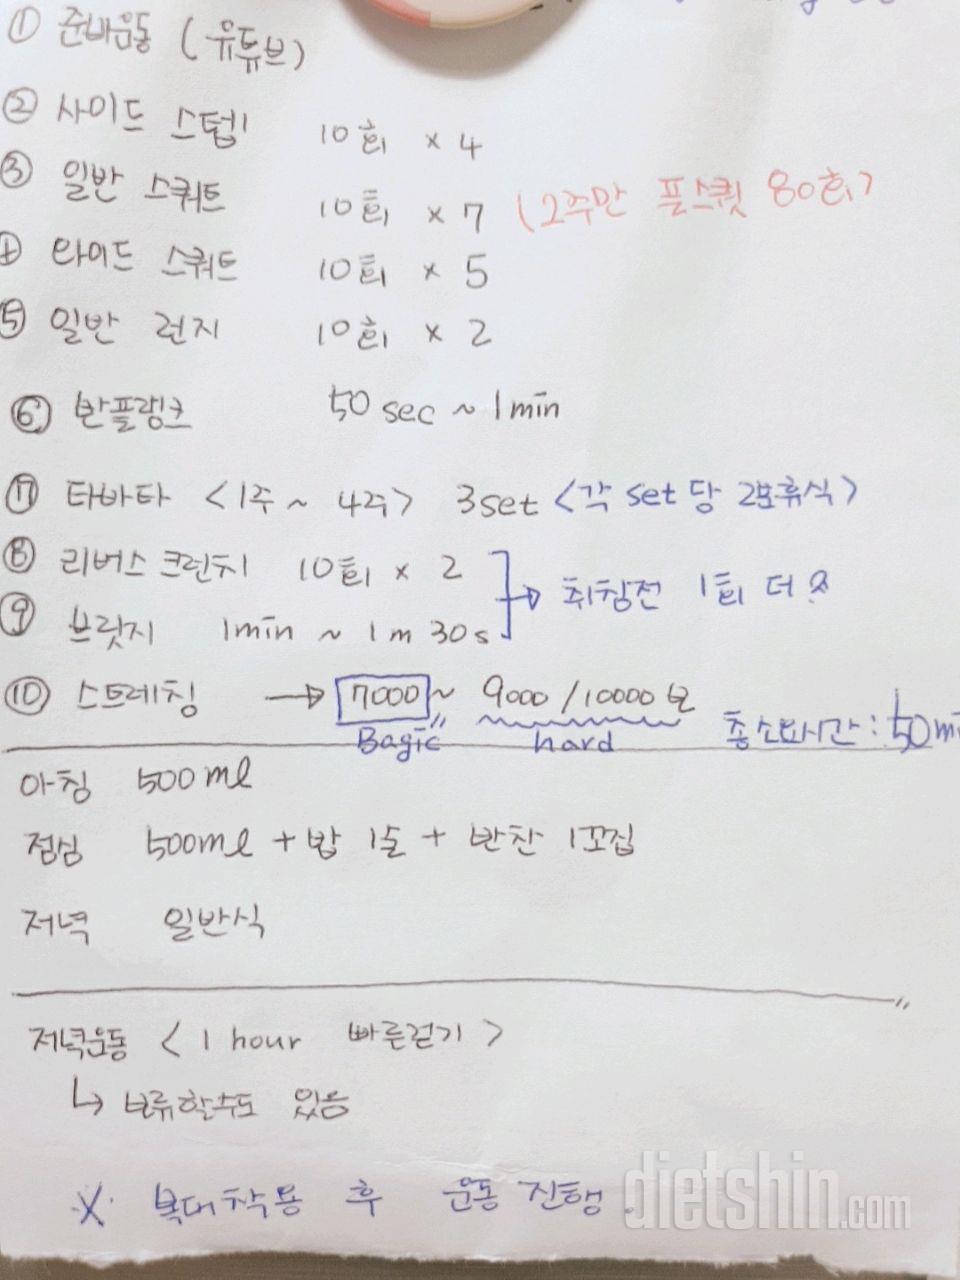 ① 준비운동 (유튜브)
② 사이드 스텝 10회 x 4
③ 일반 스쿼트 10회 x 7 (2주만 풀스쿼 80회)
④ 와이드 스쿼트 10회 x 5
⑤ 일반 런지 10회 x 2
⑥ 반플랭크 50 sec ~ 1 min
⑦ 타바타 <1주 ~ 4주> 3set <각 set 당 2분휴식>
⑧ 리버스 크런치 10회 x 2
→ 취침전 1회 더
⑨ 브릿지 1min ~ 1m 30s
⑩ 스트레칭 → 7000 ~ 9000 / 10000 보
Bagic hard 총 소요시간 : 50mi
아침 500ml
점심 500ml + 밥 1술 + 반찬 1꼬집
저녁 일반식
저녁운동 < 1 hour 빠른걷기 >
↳ 보류할수도 있음
※ 복대착용 후 운동 진행.
dietshin.com